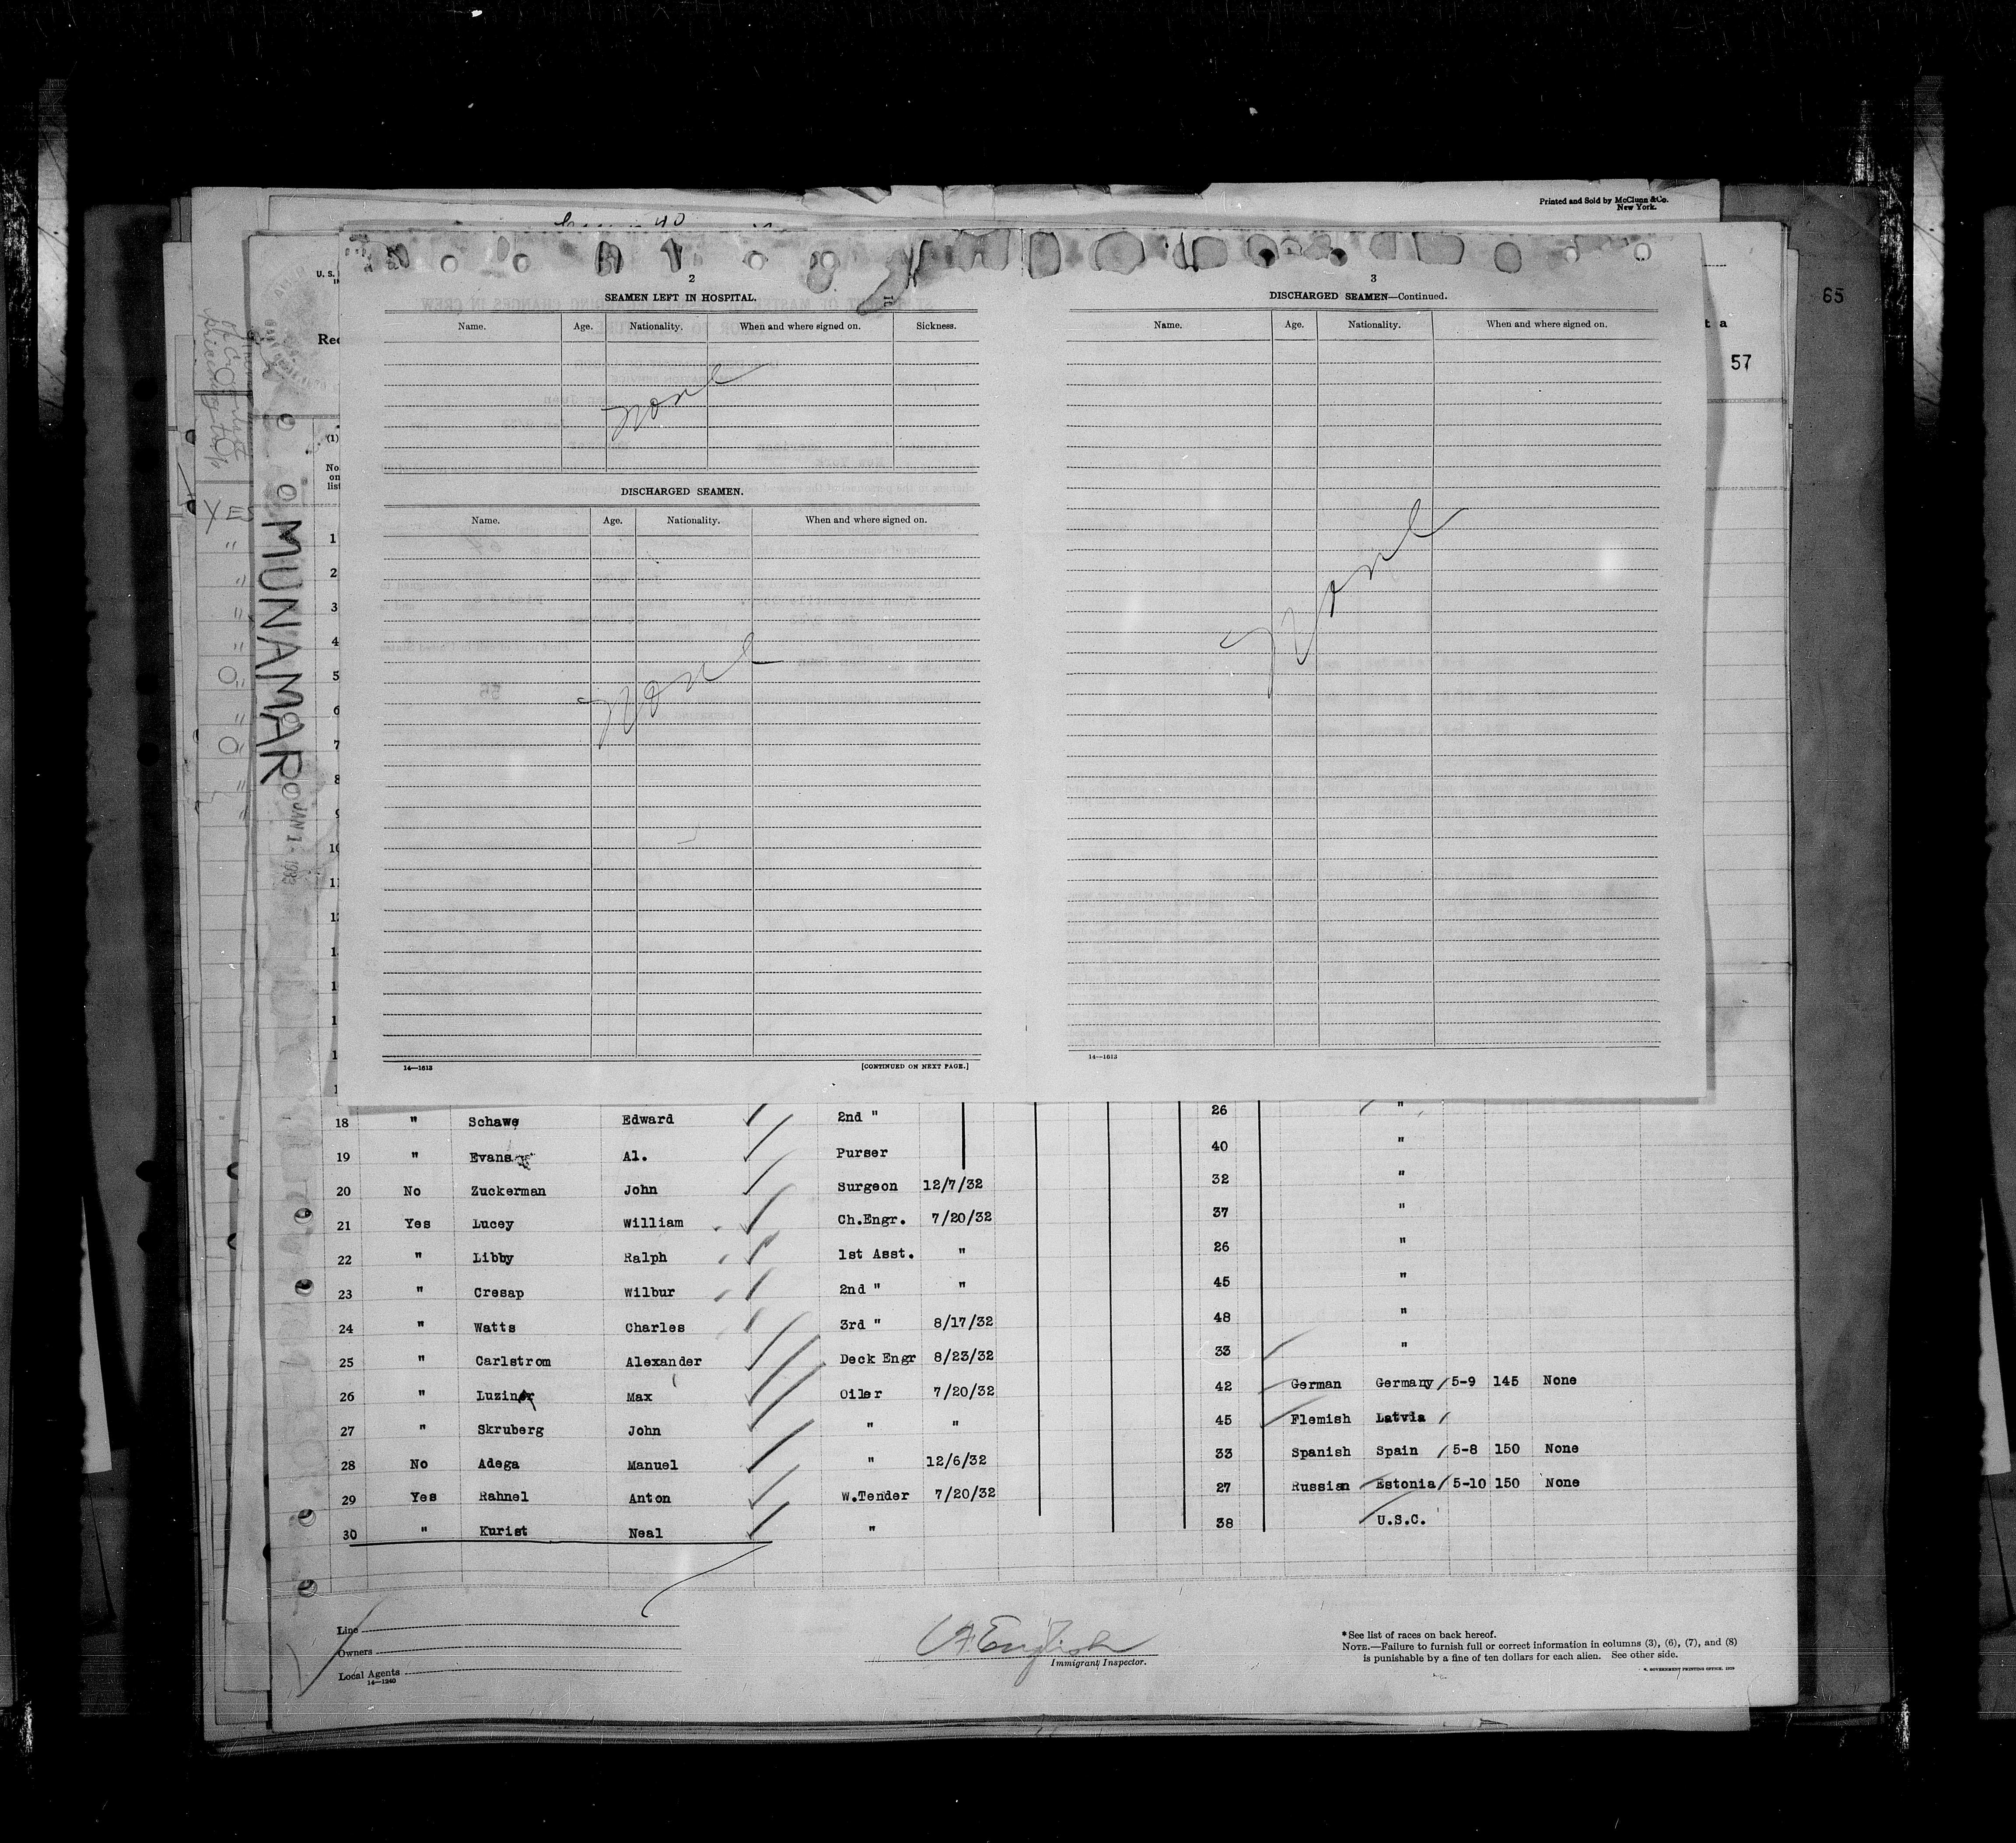 Printed and Sold by McClunn & Co.
New York.
65
57
U. S.
Rec
t a
(1)
No.
on
list
MUNAMAR
JAN 1 - 1933
2
SEAMEN LEFT IN HOSPITAL.
Name. Age. Nationality. When and where signed on. Sickness.
None
DISCHARGED SEAMEN.
Name. Age. Nationality. When and where signed on.
None
14—1613 [CONTINUED ON NEXT PAGE.]
3
DISCHARGED SEAMEN—Continued.
Name. Age. Nationality. When and where signed on.
None
14—1613
1
2
3
4
5
6
7
8
9
10
11
18 " Schawe Edward 2nd " 26 "
19 " Evans Al. Purser 40 "
20 No Zuckerman John Surgeon 12/7/32 32 "
21 Yes Lucey William Ch.Engr. 7/20/32 37 "
22 " Libby Ralph 1st Asst. " 26 "
23 " Cresap Wilbur 2nd " " 45 "
24 " Watts Charles 3rd " 8/17/32 48 "
25 " Carlstrom Alexander Deck Engr 8/23/32 33 "
26 " Luziner Max Oiler 7/20/32 42 German Germany 5-9 145 None
27 " Skruberg John " " 45 Flemish Latvia
28 No Adega Manuel " 12/6/32 33 Spanish Spain 5-8 150 None
29 Yes Rahnel Anton W.Tender 7/20/32 27 Russian Estonia 5-10 150 None
30 " Kurist Neal " 38 U.S.C.
Line
Owners
Local Agents
14—1240
English
Immigrant Inspector.
* See list of races on back hereof.
NOTE.—Failure to furnish full or correct information in columns (3), (6), (7), and (8)
is punishable by a fine of ten dollars for each alien. See other side.